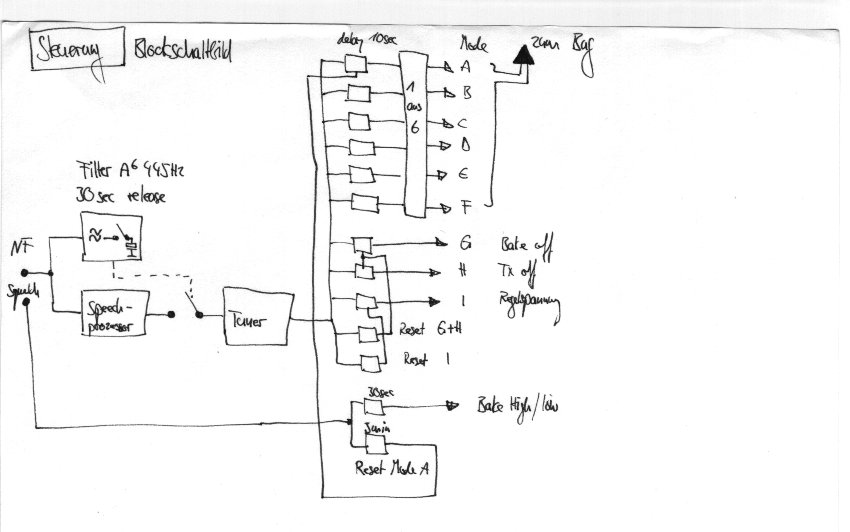 Steuerung
Blockschaltbild
delay 10sec
Mode
Bag
A
B
C
D
E
F
1
aus
6
Filter A 445Hz
30 sec release
NF
Squelch
Speech-
prozessor
Tuner
G
Bake off
H
Tx off
I
Regelspannung
Reset G+H
Reset I
30sec
Bake High/low
3min
Reset Mode A